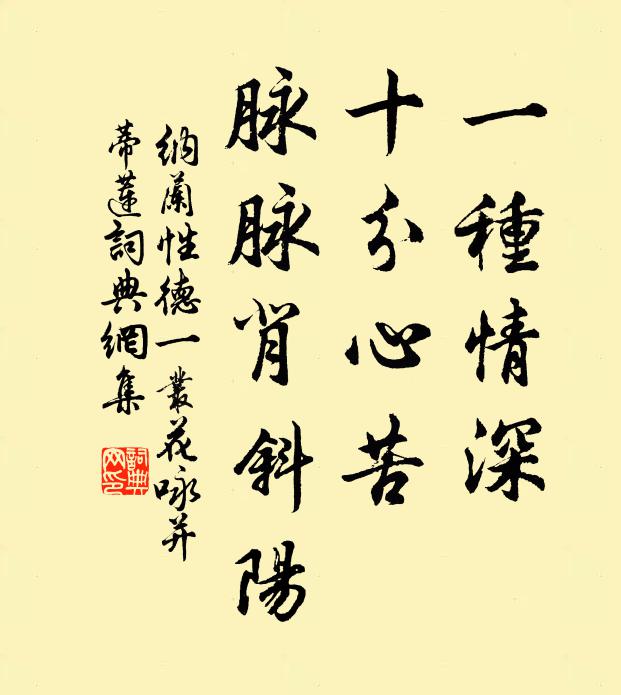 一種情深
十分心苦
脉脉背斜陽
納蘭性德一叢花咏并
蒂蓮詞典網集
詞典
网印